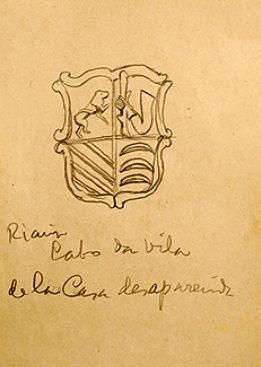 Riaño
Cabo da Vila
de la Casa desaparecida